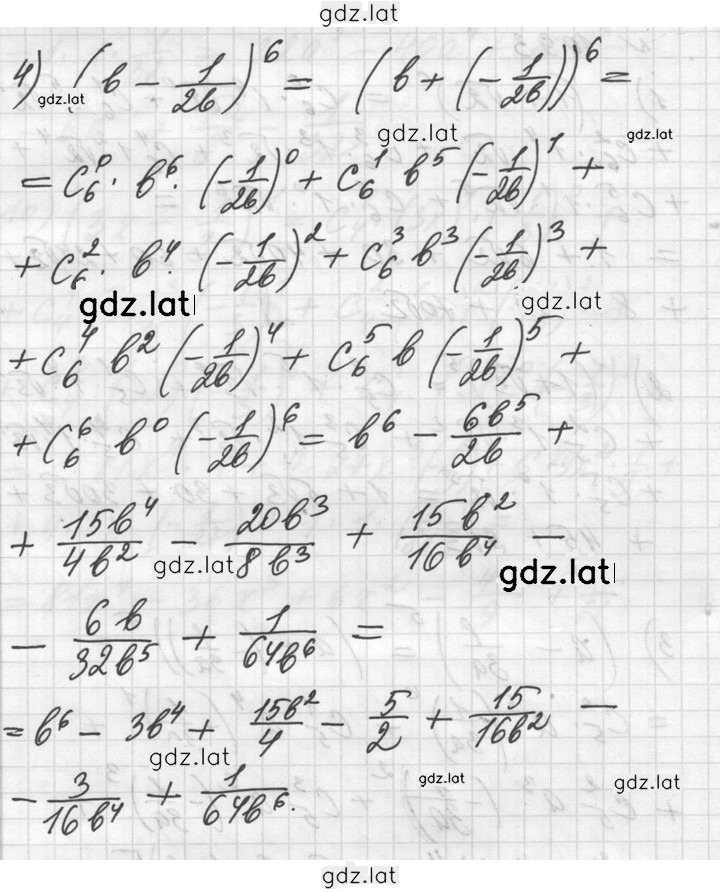 gdz.lat
4) (b - 1/(2b))^6 = (b + (-1/(2b)))^6 =
gdz.lat
gdz.lat
gdz.lat
= C_6^0 · b^6 · (-1/(2b))^0 + C_6^1 b^5 (-1/(2b))^1 +
+ C_6^2 · b^4 · (-1/(2b))^2 + C_6^3 b^3 (-1/(2b))^3 +
gdz.lat
gdz.lat
+ C_6^4 b^2 (-1/(2b))^4 + C_6^5 b (-1/(2b))^5 +
+ C_6^6 b^0 (-1/(2b))^6 = b^6 - 6b^5/(2b) +
+ 15b^4/(4b^2) - 20b^3/(8b^3) + 15b^2/(16b^4) -
gdz.lat
gdz.lat
- 6b/(32b^5) + 1/(64b^6) =
= b^6 - 3b^4 + 15b^2/4 - 5/2 + 15/(16b^2) -
gdz.lat
gdz.lat
gdz.lat
- 3/(16b^4) + 1/(64b^6).
gdz.lat